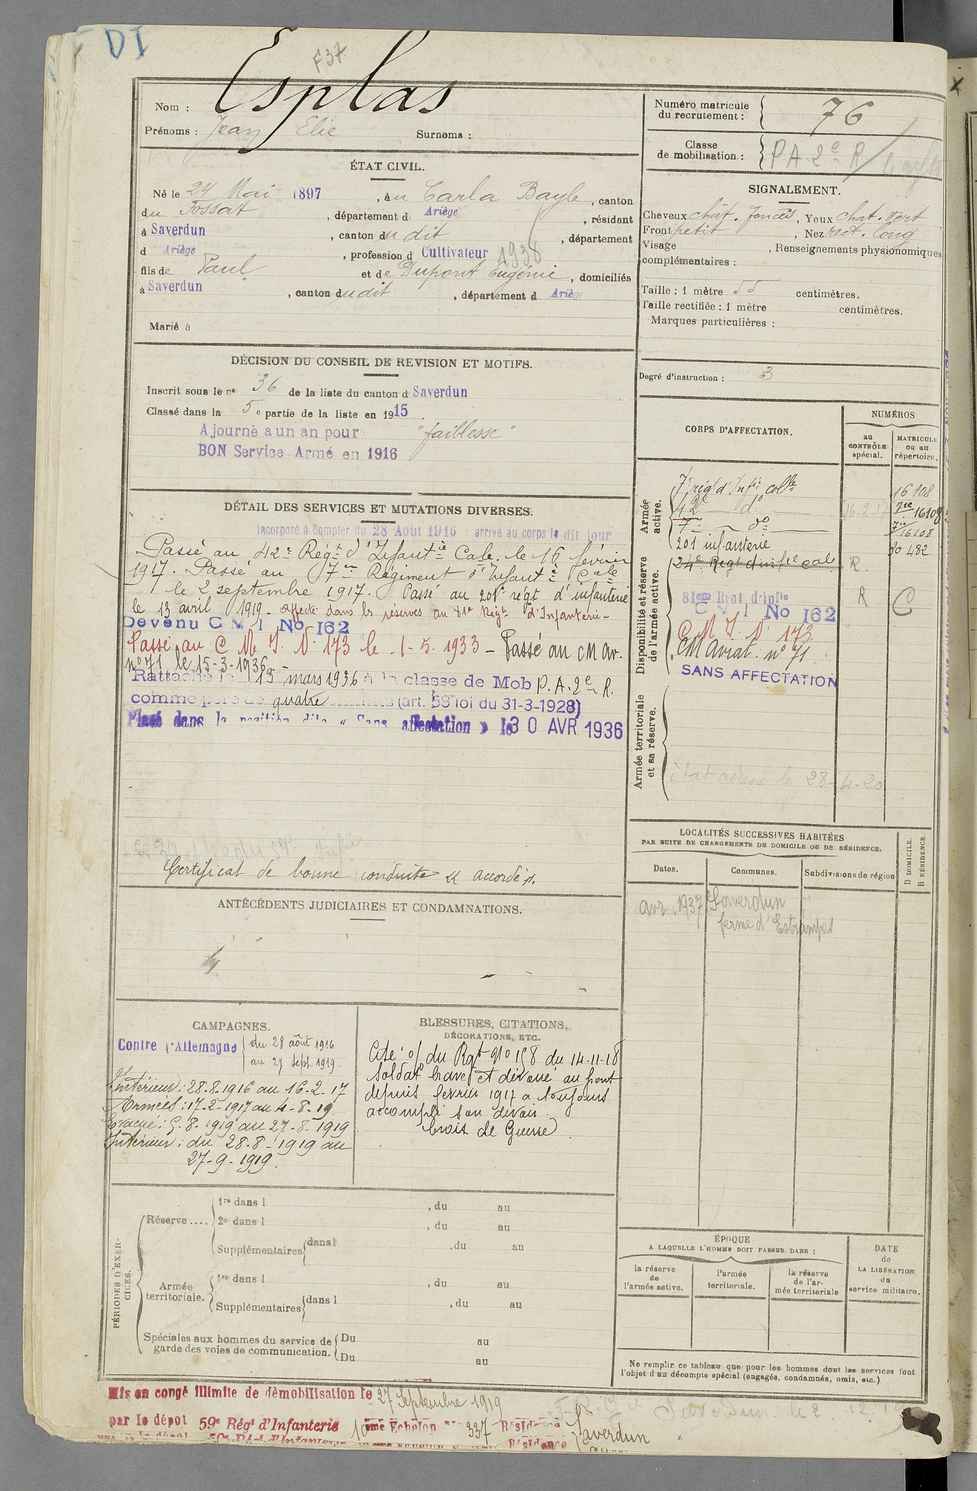 DI
F37
Nom : Esplas
Prénoms : Jean Elie Surnoms :
Numéro matricule du recrutement : 76
Classe de mobilisation : P.A. 2e R
ÉTAT CIVIL.
Né le 24 Mai 1897, à Carla Bayle, canton
du Fossat, département d Ariège, résident
à Saverdun, canton du dit, département
d Ariège, profession d Cultivateur 1938
fils de Paul et de Dupont Eugénie, domiciliés
à Saverdun, canton du dit, département d Ariège
Marié à
SIGNALEMENT.
Cheveux chât. foncés, Yeux chat. vert
Front petit, Nez rect. long
Visage , Renseignements physionomiques
complémentaires :
Taille : 1 mètre 55 centimètres.
Taille rectifiée : 1 mètre centimètres.
Marques particulières :
Degré d'instruction : 3
DÉCISION DU CONSEIL DE REVISION ET MOTIFS.
Inscrit sous le n° 36 de la liste du canton d Saverdun
Classé dans la 5e partie de la liste en 1915.
Ajourné à un an pour "faiblesse"
BON Service Armé en 1916
DÉTAIL DES SERVICES ET MUTATIONS DIVERSES.
Incorporé à Compter du 28 Août 1916 arrivé au corps le dit jour
Passé au 42e Régt d'Infantie Cale le 16 février
1917. Passé au 7me Régiment d'Infantie Cale
le 2 septembre 1917. Passé au 201e régt d'infanterie
le 13 avril 1919. Affecté dans la réserve au 81e Régt d'Infanterie-
Devenu C M I No 162
Passé au C. M. I. N° 173 le 1-5.1933 - Passé au CM Av.
n°71 le 15-3-1936.-
Rattaché le 13 mars 1936 à la classe de Mob P.A.2e R.
comme père de quatre enfants (art. 58 loi du 31-3-1928)
Placé dans la position dite « Sans affectation » le 30 AVR 1936
Certificat de bonne conduite "accordé".
CORPS D'AFFECTATION.
NUMÉROS
au CONTRÔLE spécial.
MATRICULE ou au répertoire.
Armée active.
7e régt d'Infie colle 16108
42e do 16108
7e do 16108
201 infanterie 80 482
Disponibilité et réserve de l'armée active.
24e Régt d'infie col R
81eme Régt. d'Infie R C
C M I No 162
C. M. I. N° 173
CM Aviat. n° 71
SANS AFFECTATION
Armée territoriale et sa réserve.
28-4-20
LOCALITÉS SUCCESSIVES HABITÉES
PAR SUITE DE CHANGEMENTS DE DOMICILE OU DE RÉSIDENCE.
Dates. Communes. Subdivisions de région D DOMICILE. R RÉSIDENCE.
avr. 1937 Saverdun
ferme d'Estrampes
ANTÉCÉDENTS JUDICIAIRES ET CONDAMNATIONS.
CAMPAGNES.
Contre l'Allemagne du 28 août 1916
au 27 sept. 1919.
Intérieur : 28-8-1916 au 16-2-17
Armées : 17-2-1917 au 4-8-19
Evacué : 5-8-1919 au 27-8-1919
Intérieur : du 28-8-1919 au
27-9-1919.
BLESSURES, CITATIONS,
DÉCORATIONS, ETC.
Cité : o/ du Rgt n° 158 du 14-11-18
Soldat brave et dévoué au front
depuis février 1917 a toujours
accompli son devoir.
Croix de Guerre
PÉRIODES D'EXERCICES.
Réserve .... 1re dans l , du au
2e dans l , du au
Supplémentaires dans l , du au
Armée territoriale. 1re dans l , du au
Supplémentaires dans l , du au
Spéciales aux hommes du service de garde des voies de communication. Du au
Du au
ÉPOQUE
A LAQUELLE L'HOMME DOIT PASSER DANS :
la réserve de l'armée active.
l'armée territoriale.
la réserve de l'armée territoriale
DATE de LA LIBÉRATION du service militaire.
Ne remplir ce tableau que pour les hommes dont les services font
l'objet d'un décompte spécial (engagés, condamnés, omis, etc.)
Mis en congé illimité de démobilisation le 27 Septembre 1919
par le dépôt 59e Régt d'Infanterie 10eme Echelon n° 337 Résidence Saverdun